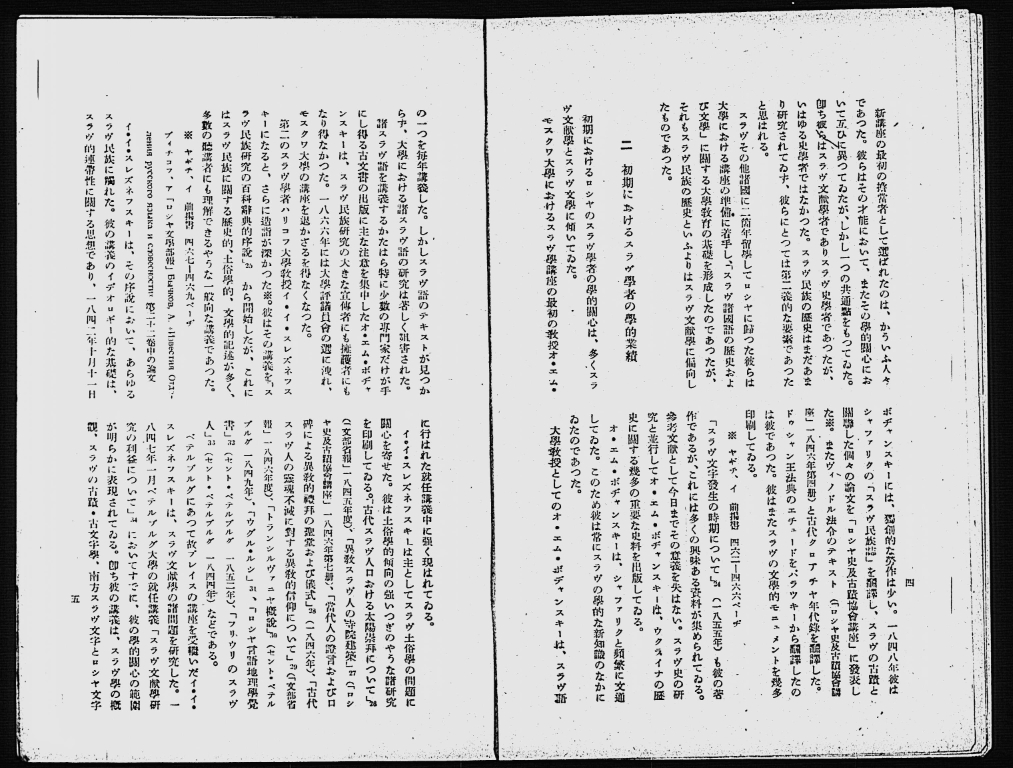 新講座の最初の擔當者として選ばれたのは、かういふ人々
であつた。彼らはその才能において、またその學的關心にお
いて互ひに異つてゐたが、しかし一つの共通點をもつてゐた。
卽ち彼らはスラヴ文獻學者でありスラヴ史學者であつたが、
いはゆる史學者ではなかつた。スラヴ民族の歷史はまだあま
り硏究されてゐず、彼らにとつては第二義的な要素であつた
と思はれる。
スラヴその他諸國に二箇年留學してロシヤに歸つた彼らは
大學における講座の準備に着手し、「スラヴ諸國語の歷史およ
び文學」に關する大學敎育の基礎を形成したのであつたが、
それもスラヴ民族の歷史といふよりはスラヴ文獻學に偏向し
たものであつた。
二 初期におけるスラヴ學者の學的業績
初期におけるロシヤのスラヴ學者の學的關心は、多くスラ
ヴ文獻學とスラヴ文學に傾いてゐた。
モスクワ大學におけるスラヴ學講座の最初の敎授オ・エム・
ボヂャンスキーには、獨創的な勞作は少い。一八四八年彼は
シャファリクの「スラヴ民族誌」を飜譯し、スラヴの古蹟と
關聯した個々の論文を「ロシヤ史及古蹟協會講座」に發表し
た※。またヴィノドル法令のテキスト(「ロシヤ史及古蹟協會講
座」一八四六年第四册)と古代クロアチヤ年代錄を飜譯した。
ドゥシャン王法典のエチュードをパラツキーから飜譯したの
は彼であつた。彼はまたスラヴの文學的モニュメントを幾多
印刷してゐる。
※ ヤギチ、イ 前揭書 四六二―四六六ページ
「スラヴ文字發生の時期について」(一八五五年)も彼の著
作であるが、これには多くの興味ある資料が集められてゐる。
參考文獻として今日までその意義を失はない。スラヴ史の硏
究と並行してオ・エム・ボヂャンスキーは、ウクライナの歷
史に關する幾多の重要な史料を出版してゐる。
オ・エム・ボヂャンスキーは、シャファリクと頻繁に文通
してゐた。このため彼は常にスラヴの學的な新知識のなかに
ゐたのであつた。
大學敎授としてのオ・エム・ボヂャンスキーは、スラヴ語
四
の一つを每年講義した。しかしスラヴ語のテキストが見つか
らず、大學における諸スラヴ語の硏究は著しく阻害された。
諸スラヴ語を講義するかたはら特に少數の專門家だけが手
にし得る古文書の出版に主な注意を集中したオ・エム・ボヂャ
ンスキーは、スラヴ民族硏究の大きな宣傳者にも擁護者にも
なり得なかつた。一八六六年には大學評議員會の選に洩れ、
モスクワ大學の講座を退かざるを得なくなつた。
第二のスラヴ學者ハリコフ大學敎授イ・イ・スレズネフス
キーになると、さらに造詣が深かつた※。彼はその講義を「ス
ラヴ民族硏究の百科辭典的序說」から開始したが、これに
はスラヴ民族に關する歷史的、土俗學的、文學的記述が多く、
多數の聽講者にも理解できるやうな一般向な講義であつた。
※ ヤギチ、イ 前揭書 四六七―四六九ページ
ブィチコフ、ア「ロシヤ文學部報」Бычков, А. «Известия Отде-
ления русского языка и словесности» 第二十二卷中の論文
イ・イ・スレズネフスキーは、その序說において、あらゆる
スラヴ民族に觸れた。彼の講義のイデオロギー的な基礎は、
スラヴ的連帶性に關する思想であり、一八四二年十月十一日
に行はれた就任講義中に强く現はれてゐる。
イ・イ・スレズネフスキーは主としてスラヴ土俗學の問題に
關心を寄せた。彼は土俗學的傾向の强いつぎのやうな諸硏究
を印刷してゐる。「古代スラヴ人における太陽崇拜について」
(「文部省報」一八四五年度)、「異敎スラヴ人の寺院建築」(「ロシ
ヤ史及古蹟協會講座」一八四六年第七册)、「當代人の證言およびロ
碑による異敎的禮拜の聖堂および儀式」(一八四六年)、「古代
スラヴ人の靈魂不滅に對する異敎的信仰について」(「文部省
報」一八四六年度)、「トランシルヴァニヤ槪說」(セント・ペテル
ブルグ 一八四九年)、「ウグル・ルシ」、「ロシヤ言語地理學覺
書」(セント・ペテルブルグ 一八五二年)、「フリウリのスラヴ
人」(セント・ペテルブルグ 一八四四年)などである。
ペテルブルグにあつて故プレイスの講座を受繼いだイ・イ・
スレズネフスキーは、スラヴ文獻學の諸問題を硏究した。一
八四七年一月ペテルブルグ大學の就任講義「スラヴ文獻學硏
究の利益について」においてすでに、彼の學的關心の範圍
が明らかに表現されてゐる。卽ち彼の講義は、スラヴ學の槪
觀、スラヴの古蹟・古文字學、南方スラヴ文字とロシヤ文字
五